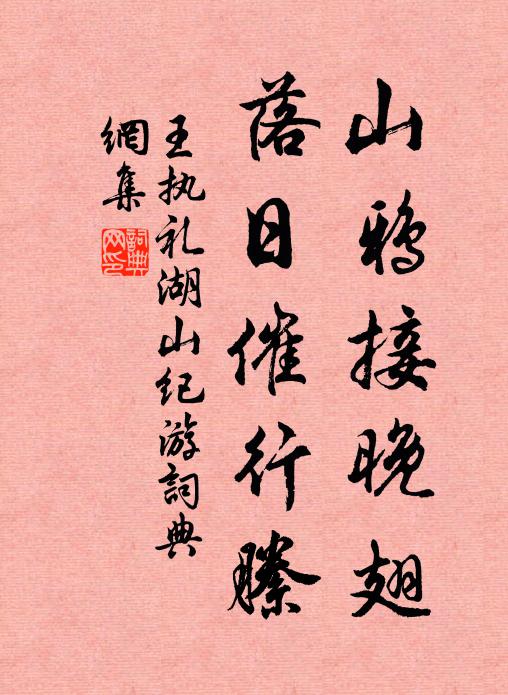 山鸦接晚翅
落日催行縢
王执礼湖山纪游詞典
網集
詞典
网印